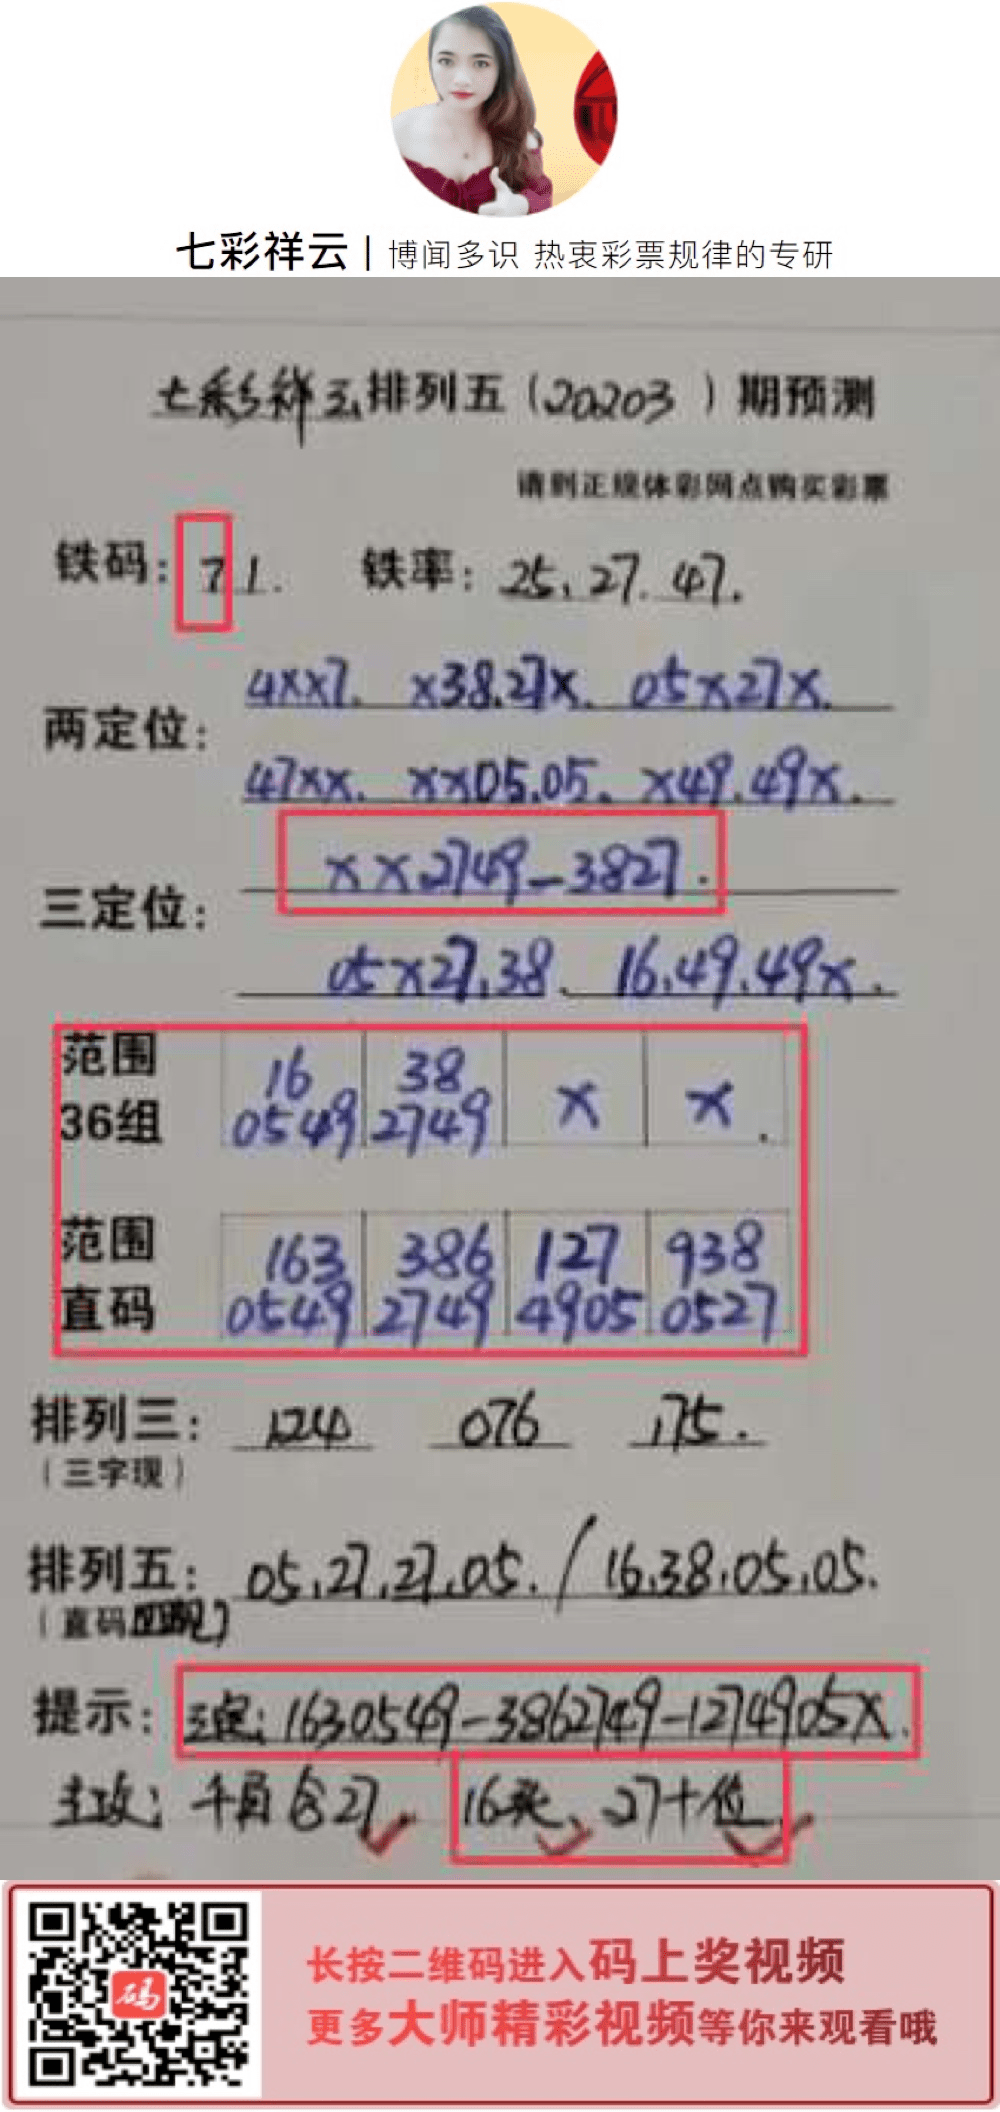 七彩祥云 | 博闻多识 热衷彩票规律的专研
七彩祥云排列五（20203）期预测
请到正规体彩网点购买彩票
铁码：71. 铁率：25、27. 47.
两定位：4xx7. x38.27x. 05x27x.
47xx. xx05.05、x49.49x.
三定位：xx2749-3827.
05x27.38、16.49.49x.
范围36组 16 0549 38 2749 x x.
范围直码 163 0549 386 2749 127 4905 938 0527
排列三：124 076 175.
（三字现）
排列五：05.27.27.05. / 16.38.05.05.
（直码四现）
提示：三定：1630549-3862749-1274905X.
主攻：千百含27. 16头、27十位.
码
长按二维码进入码上奖视频
更多大师精彩视频等你来观看哦